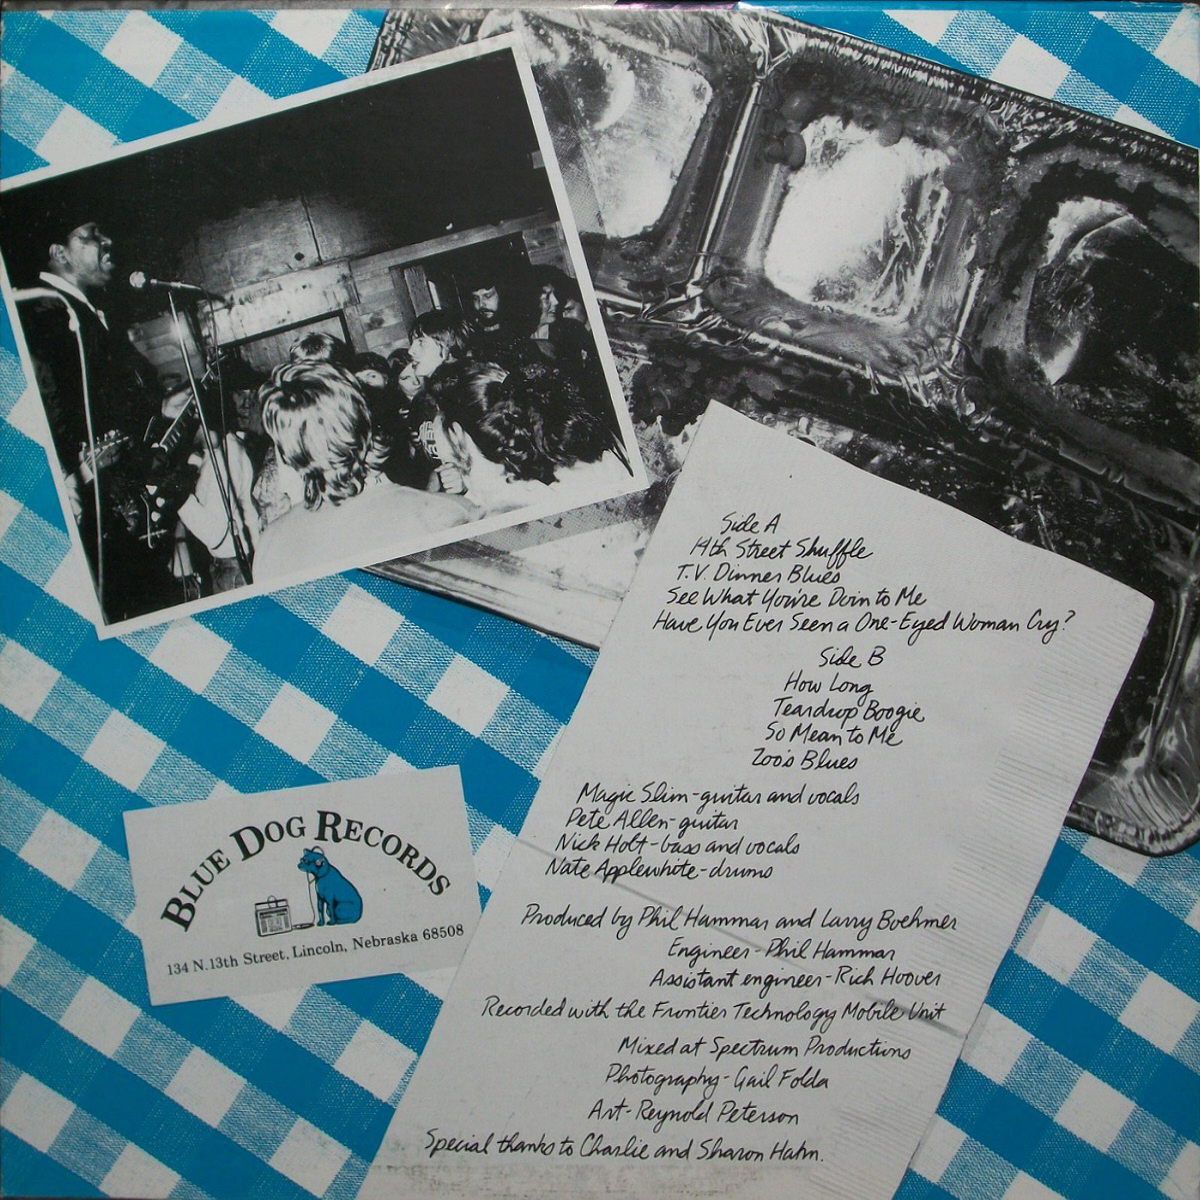 Side A
14th Street Shuffle
T.V. Dinner Blues
See What You're Doin to Me
Have You Ever Seen a One-Eyed Woman Cry?
Side B
How Long
Teardrop Boogie
So Mean to Me
Zoo's Blues
Magic Slim-guitar and vocals
Pete Allen-guitar
Nick Holt-bass and vocals
Nate Applewhite-drums
Produced by Phil Hammar and Larry Boehmer
Engineer-Phil Hammar
Assistant engineer-Rich Hoover
Recorded with the Frontier Technology Mobile Unit
Mixed at Spectrum Productions
Photography-Gail Folda
Art-Reynold Peterson
Special thanks to Charlie and Sharon Hahn.
BLUE DOG RECORDS
134 N.13th Street, Lincoln, Nebraska 68508